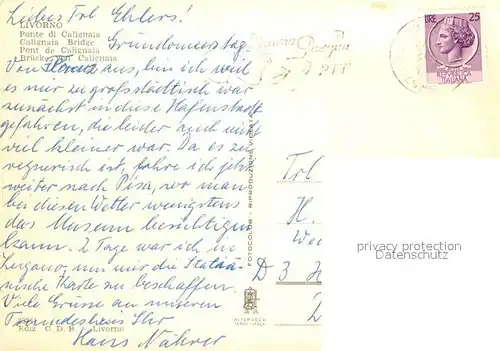 Liebes Frl Ehlers!
LIVORNO
Ponte di Calignaia
Calignaia Bridge
Pont de Calignaia
Brücke von Calignaia
Gründonnerstag
Von Florenz aus, bin ich weil
es mir zu großstädtisch war
zunächst in diese Hafenstadt
gefahren, die leider auch nicht
viel kleiner war. Da es zu
regnerisch ist, fahre ich jetzt
weiter nach Pisa, wo man
bei diesen Wetter wenigstens
das Museum besichtigen
kann. 2 Tage war ich in
Lugano, um mir die Italiä-
nische Karte zu beschaffen.
Viele Grüsse an unseren
Freundeskreis Ihr
Ediz C. D. B. Livorno
Hans Nährer
LIRE 25
REPUBBLICA
ITALIANA
FOTOCOLOR - RIPRODUZIONE
Frl
H.
D 3
privacy protection
Datenschutz